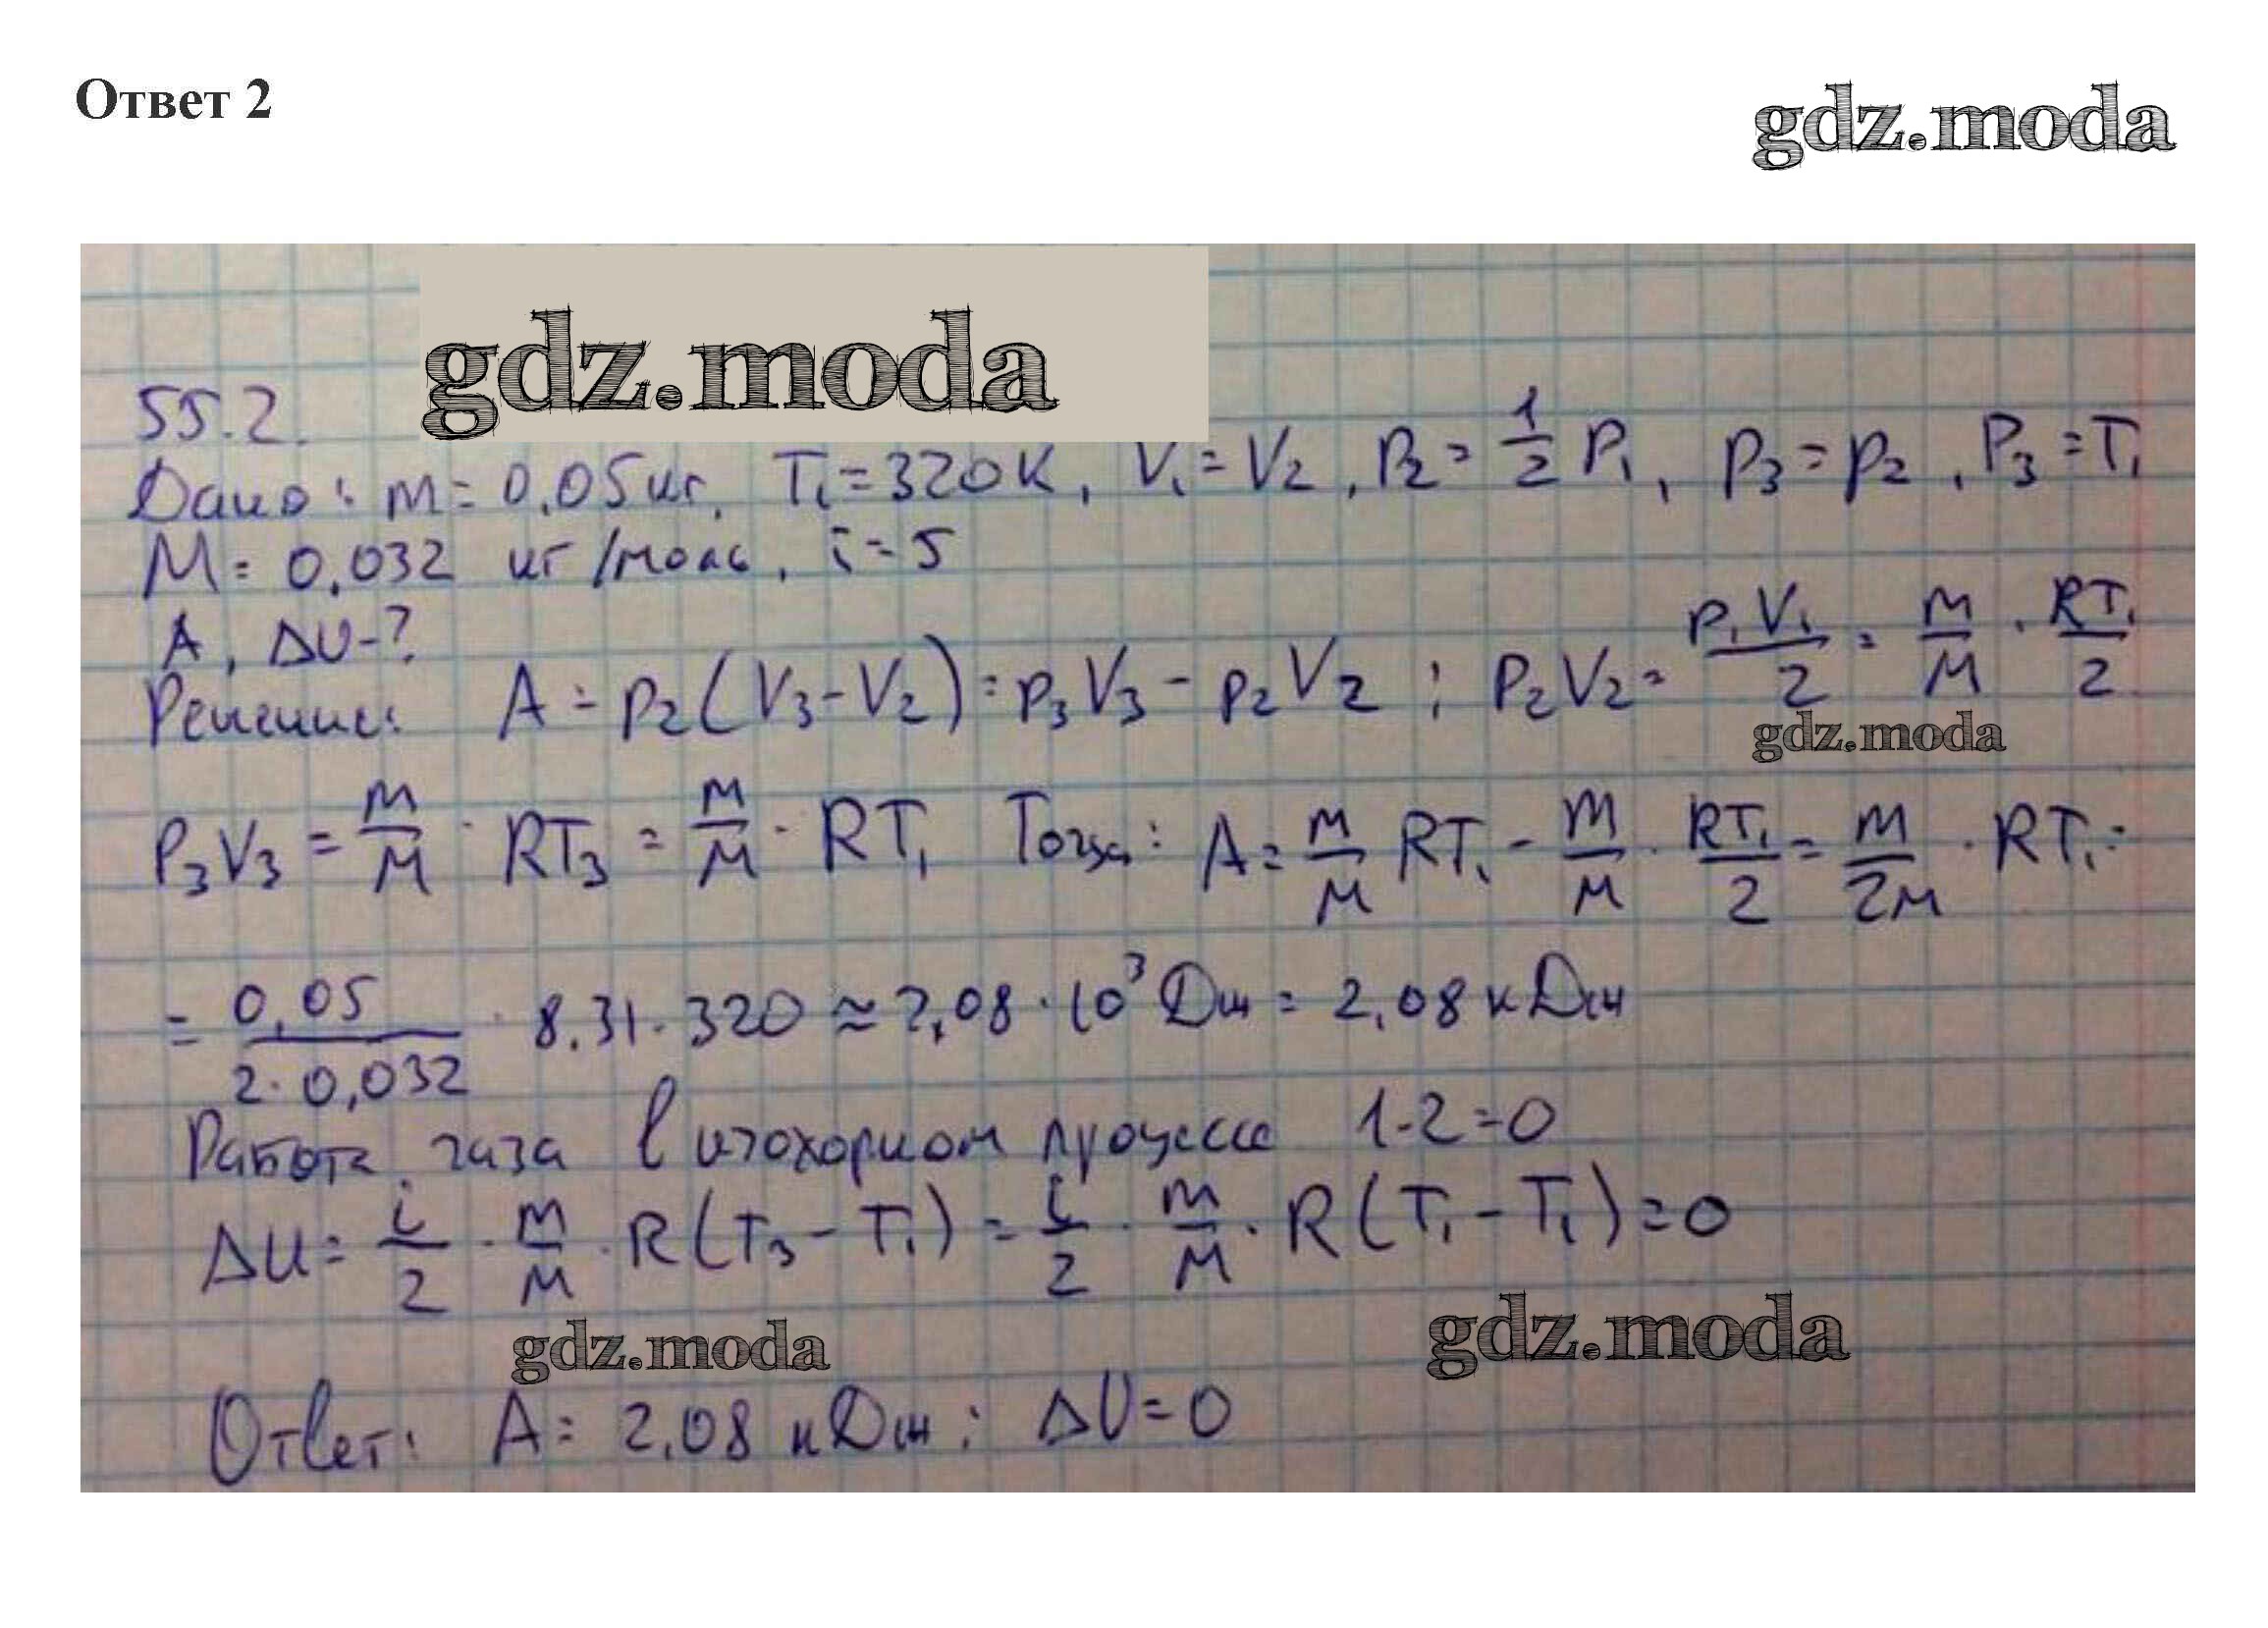 Ответ 2
gdz.moda
gdz.moda
55.2.
Дано: m = 0,05 кг, T₁ = 320 К, V₁ = V₂, P₂ = 1/2 P₁, P₃ = P₂, P₃ = T₁
M = 0,032 кг/моль, i = 5
A, ΔU - ?
Решение: A = p₂(V₃ - V₂) = p₃V₃ - p₂V₂ ; P₂V₂ = P₁V₁/2 = m/M · RT₁/2
gdz.moda
P₃V₃ = m/M · RT₃ = m/M · RT₁ Тогда: A = m/M RT₁ - m/M · RT₁/2 = m/2M · RT₁ =
= 0,05/2·0,032 · 8,31·320 ≈ 2,08·10³ Дж = 2,08 кДж
Работа газа в изохорном процессе 1-2=0
ΔU = i/2 · m/M · R(T₃ - T₁) = i/2 · m/M · R(T₁ - T₁) = 0
gdz.moda
gdz.moda
Ответ: A = 2,08 кДж; ΔU = 0